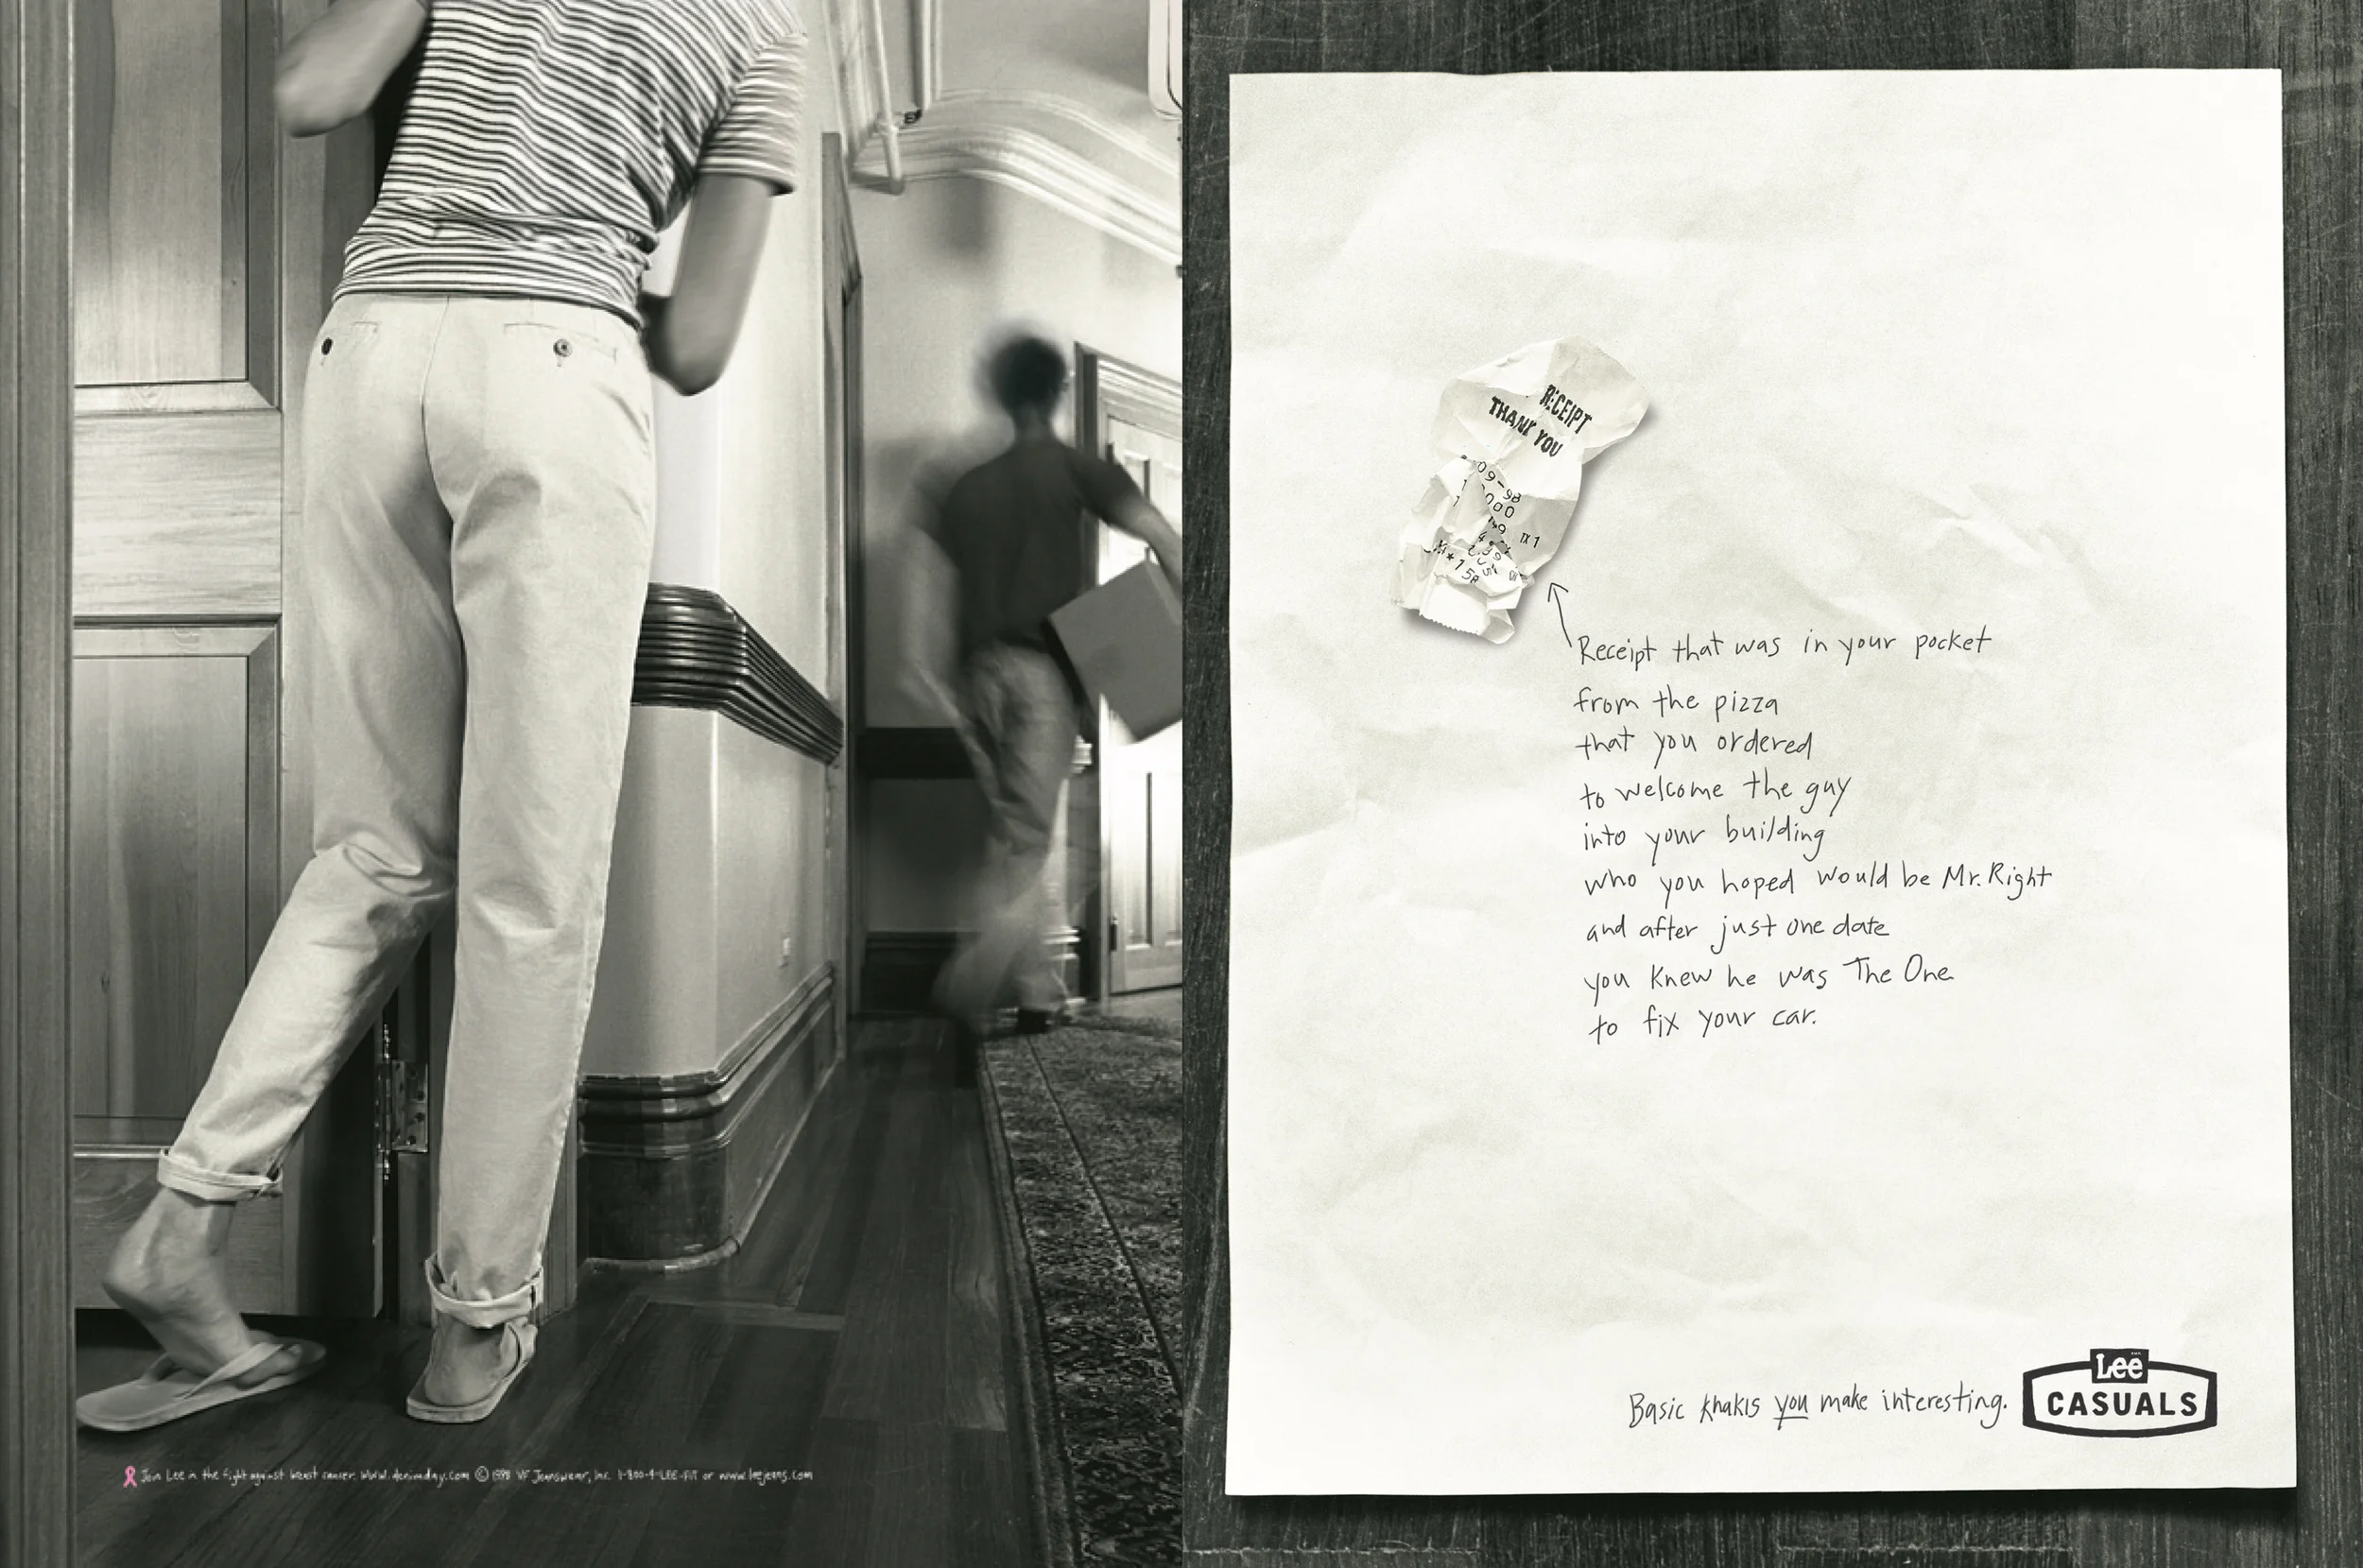 Join Lee in the fight against breast cancer. www.denimday.com © 1998 VF Jeanswear, Inc. 1-800-4-LEE-FIT or www.leejeans.com
RECEIPT
THANK YOU
09-98
000
TX 1
Receipt that was in your pocket
from the pizza
that you ordered
to welcome the guy
into your building
who you hoped would be Mr. Right
and after just one date
you knew he was The One
to fix your car.
Basic khakis you make interesting.
Lee
CASUALS